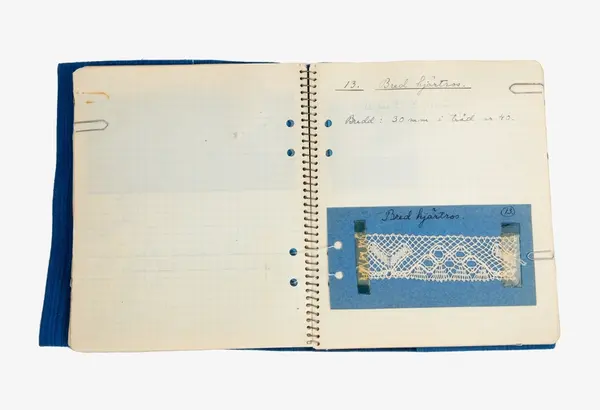 13. Bred hjärtros.
Bredd: 30 mm i tråd nr 40.
Bred hjärtros. 13